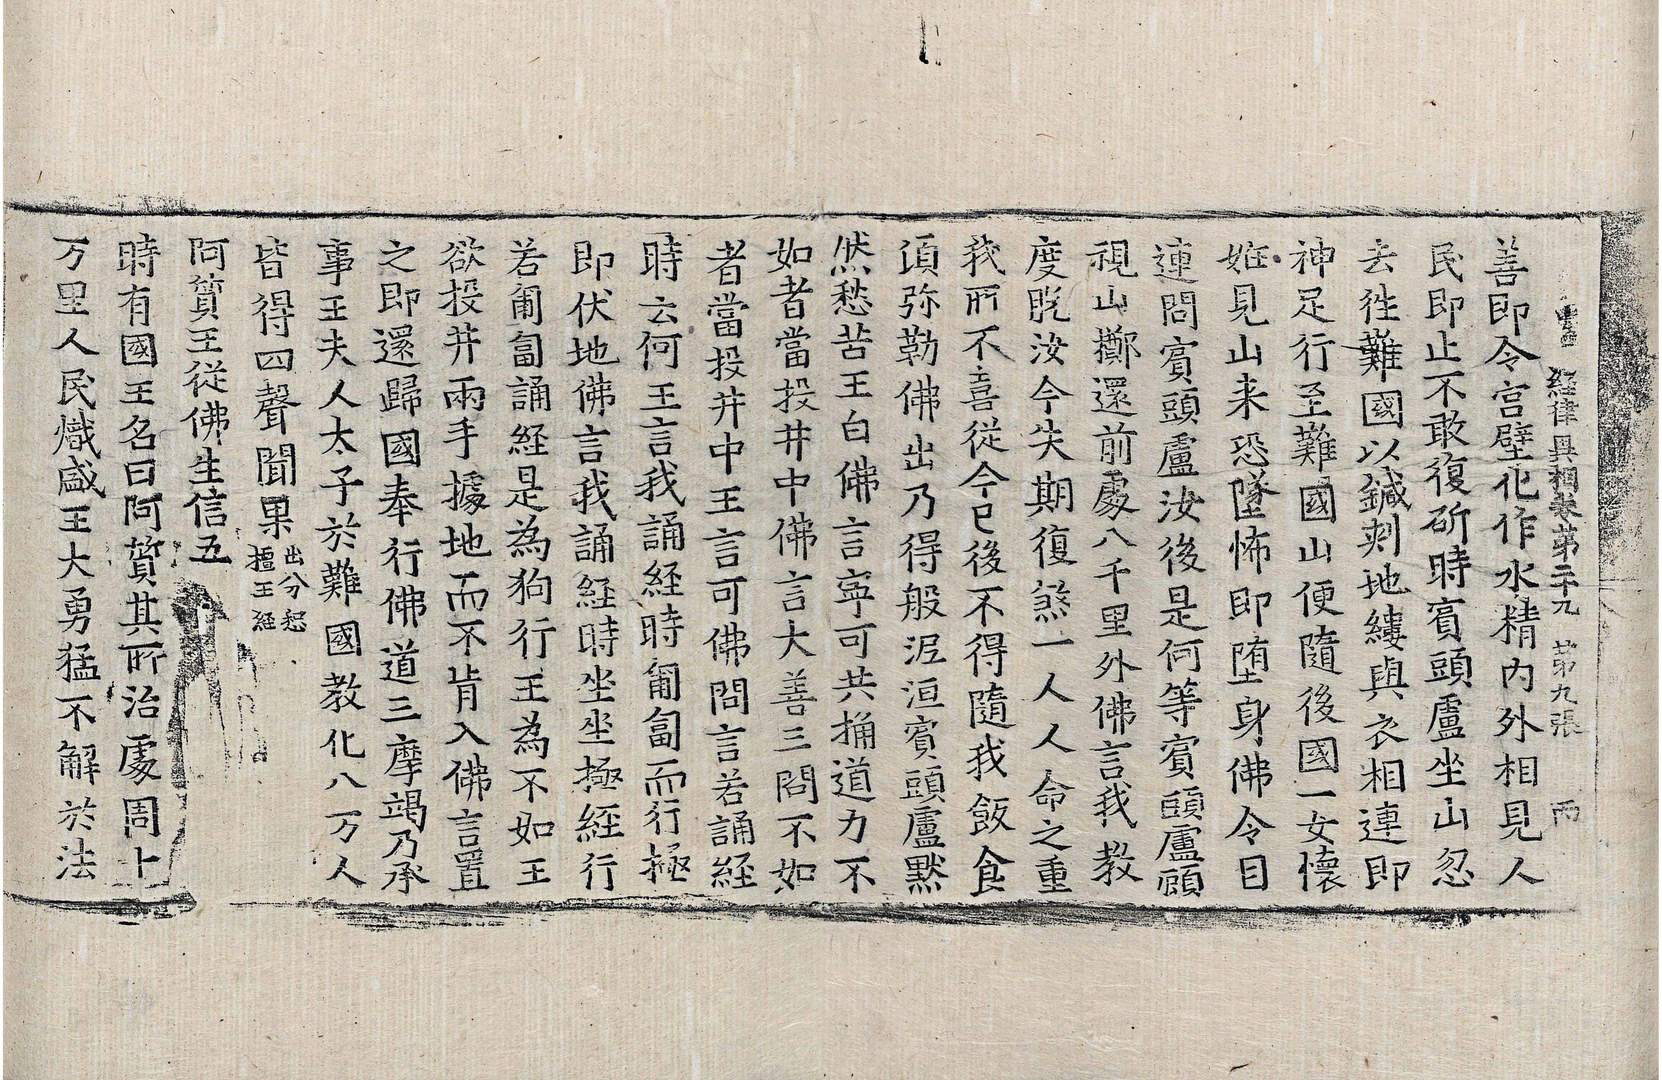 經律異相卷第二十九 第九張 丙
善即令宫壁化作水精内外相見人
民即止不敢復斫時賓頭盧坐山忍
去徃難國以鍼刾地縷與衣相連即
神足行至難國山便隨後國一女懷
姙見山来恐墜怖即堕身佛令目
連問賓頭盧汝後是何等賓頭盧顧
視山擲還前處八千里外佛言我教
度脱汝今失期復煞一人人命之重
我所不喜從今已後不得隨我飯食
須弥勒佛出乃得般泥洹賓頭盧黙
然愁苦王白佛言寜可共捔道力不
如者當投井中佛言大善三問不如
者當投井中王言可佛問言若誦經
時云何王言我誦經時匍匐而行極
即伏地佛言我誦經時坐坐極經行
若匍匐誦経是為狗行王為不如王
欲投井兩手據地而不肯入佛言置
之即還歸國奉行佛道三摩竭乃承
事王夫人太子於難國教化八万人
皆得四聲聞果出分惒檀王経
阿質王從佛生信五
時有國王名曰阿質其所治處周十
万里人民熾盛王大勇猛不解於法